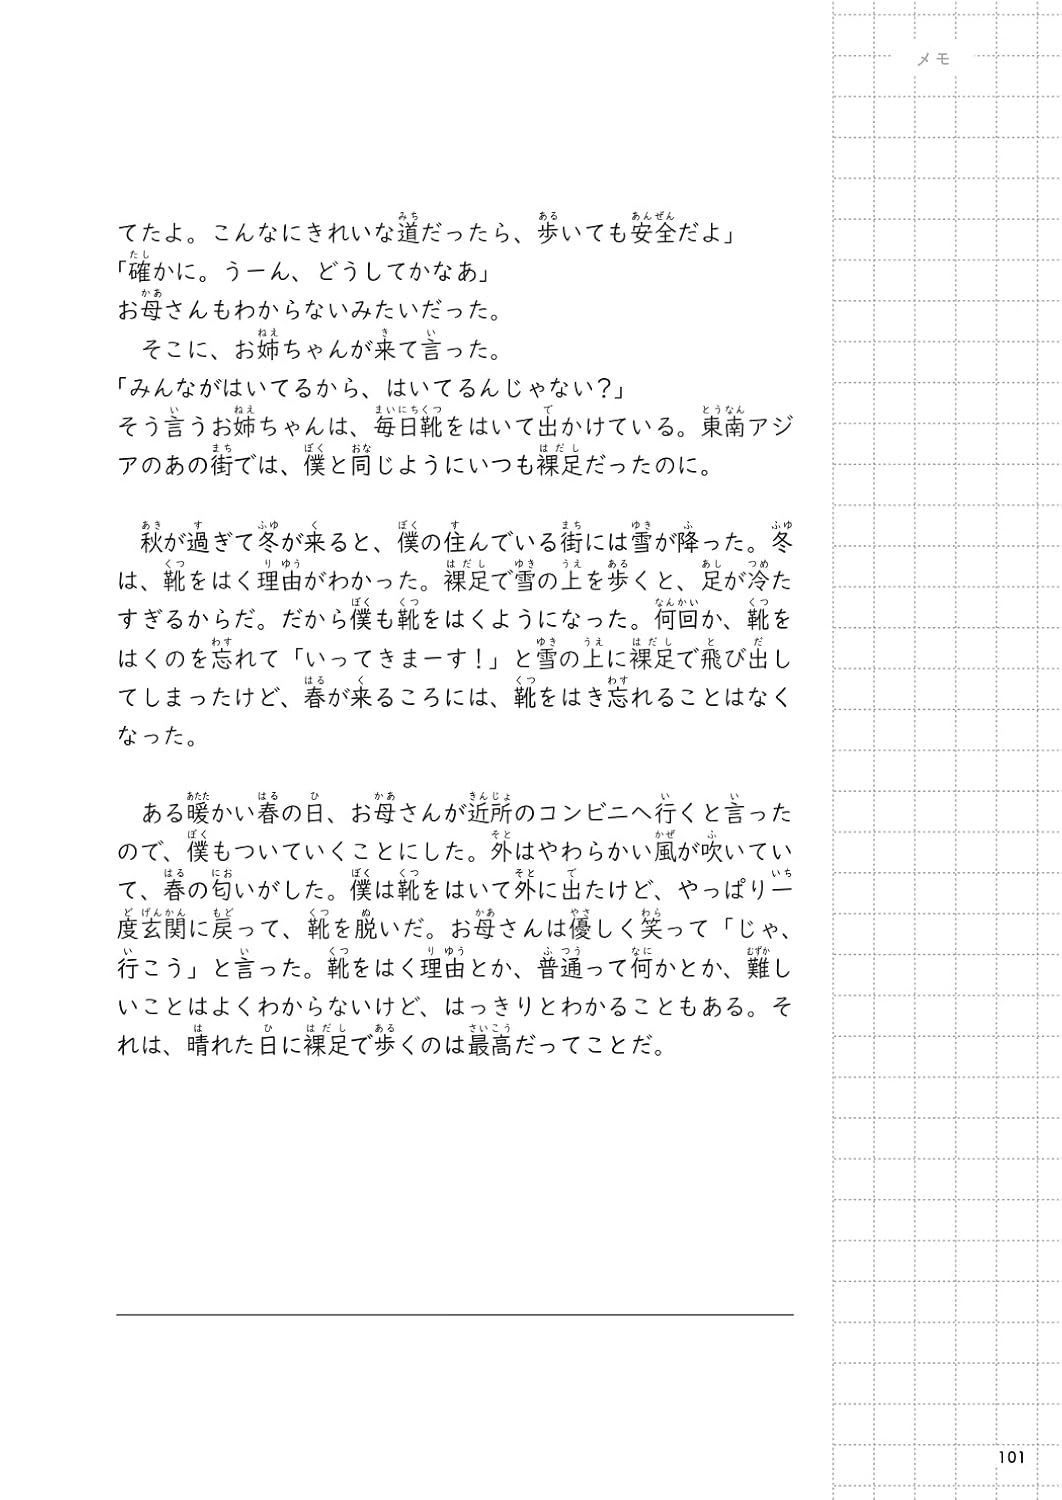 メモ
てたよ。こんなにきれいな道だったら、歩いても安全だよ」
「確かに。うーん、どうしてかなあ」
お母さんもわからないみたいだった。
　そこに、お姉ちゃんが来て言った。
「みんながはいてるから、はいてるんじゃない？」
そう言うお姉ちゃんは、毎日靴をはいて出かけている。東南アジ
アのあの街では、僕と同じようにいつも裸足だったのに。
　秋が過ぎて冬が来ると、僕の住んでいる街には雪が降った。冬
は、靴をはく理由がわかった。裸足で雪の上を歩くと、足が冷た
すぎるからだ。だから僕も靴をはくようになった。何回か、靴を
はくのを忘れて「いってきまーす！」と雪の上に裸足で飛び出し
てしまったけど、春が来るころには、靴をはき忘れることはなく
なった。
　ある暖かい春の日、お母さんが近所のコンビニへ行くと言った
ので、僕もついていくことにした。外はやわらかい風が吹いてい
て、春の匂いがした。僕は靴をはいて外に出たけど、やっぱり一
度玄関に戻って、靴を脱いだ。お母さんは優しく笑って「じゃ、
行こう」と言った。靴をはく理由とか、普通って何かとか、難し
いことはよくわからないけど、はっきりとわかることもある。そ
れは、晴れた日に裸足で歩くのは最高だってことだ。
101